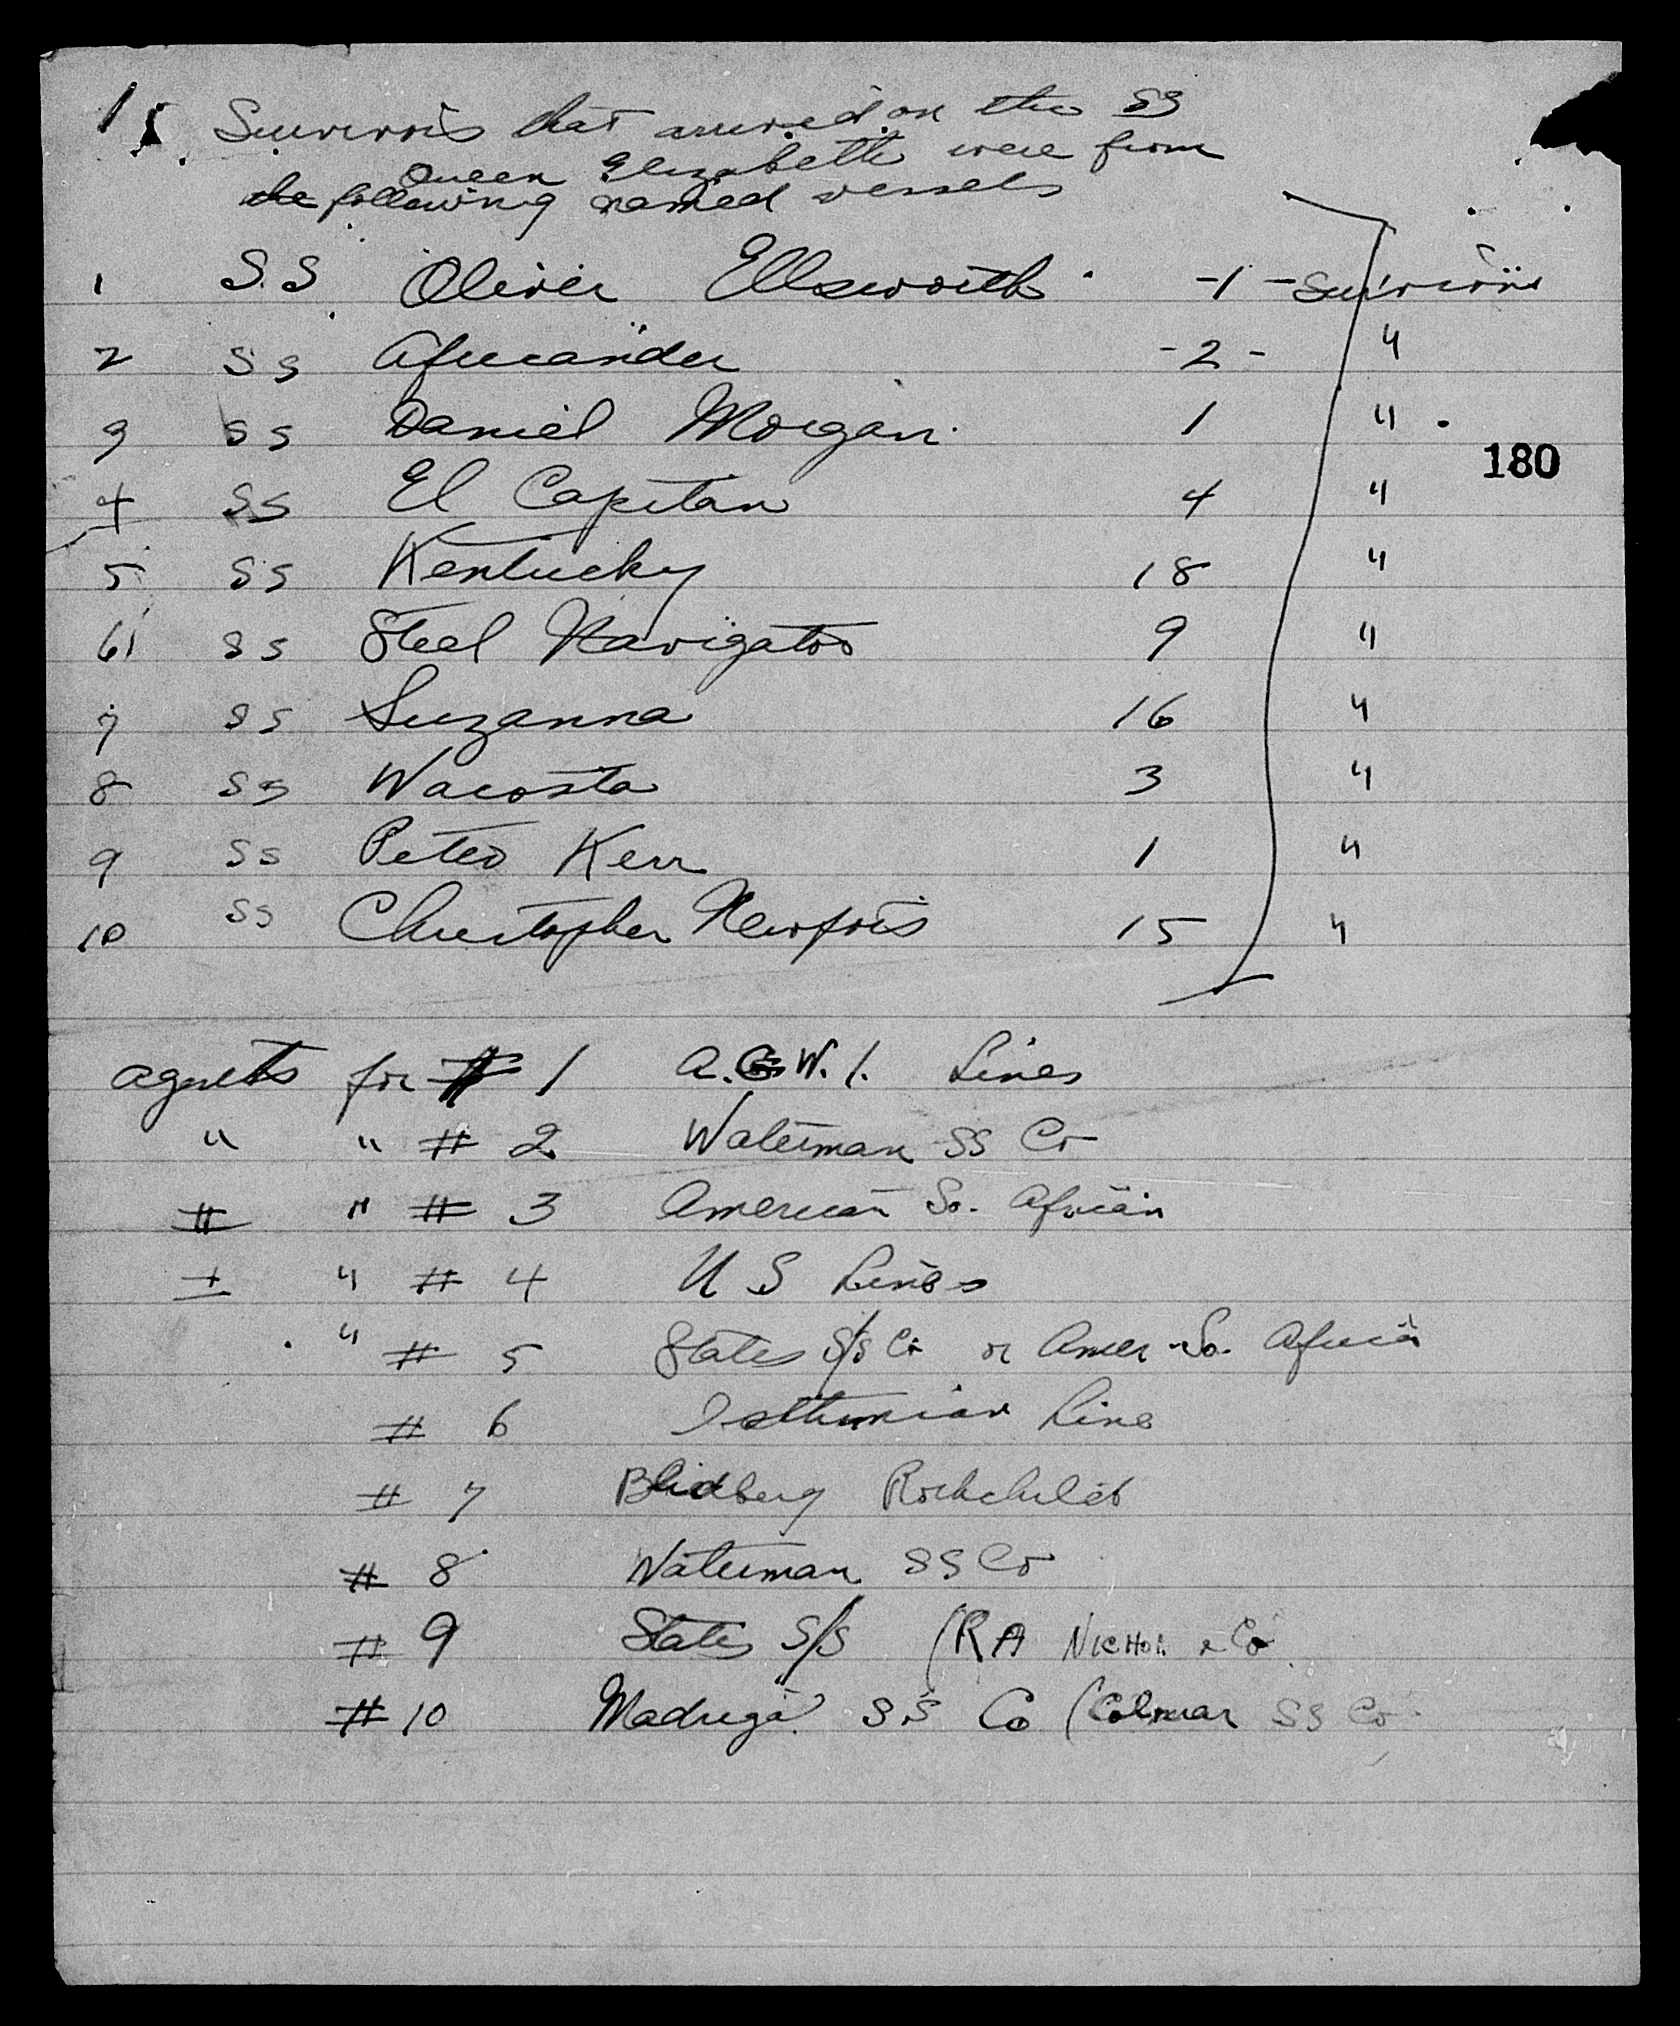 Survivors that arrived on the SS
Queen Elizabeth were from
the following named vessels
1 S.S Oliver Ellsworth -1- Survivors
2 SS Africander -2- "
3 SS Daniel Morgan 1 "
180
4 SS El Capitan 4 "
5 SS Kentucky 18 "
6 SS Steel Navigator 9 "
7 SS Suzanna 16 "
8 SS Wacosta 3 "
9 SS Peter Kerr 1 "
10 SS Christopher Newport 15 "
agents for # 1 A.G.W.I. Lines
" " # 2 Waterman SS Co
" " # 3 American So. African
" " # 4 U S Lines
" # 5 States S/S Co or Amer. So. Africa
# 6 Isthmian Line
# 7 Blidberg Rothchild
# 8 Waterman SS Co
# 9 States S/S (R A Nichol & Co
# 10 Madrigal SS Co (Colmar SS Co